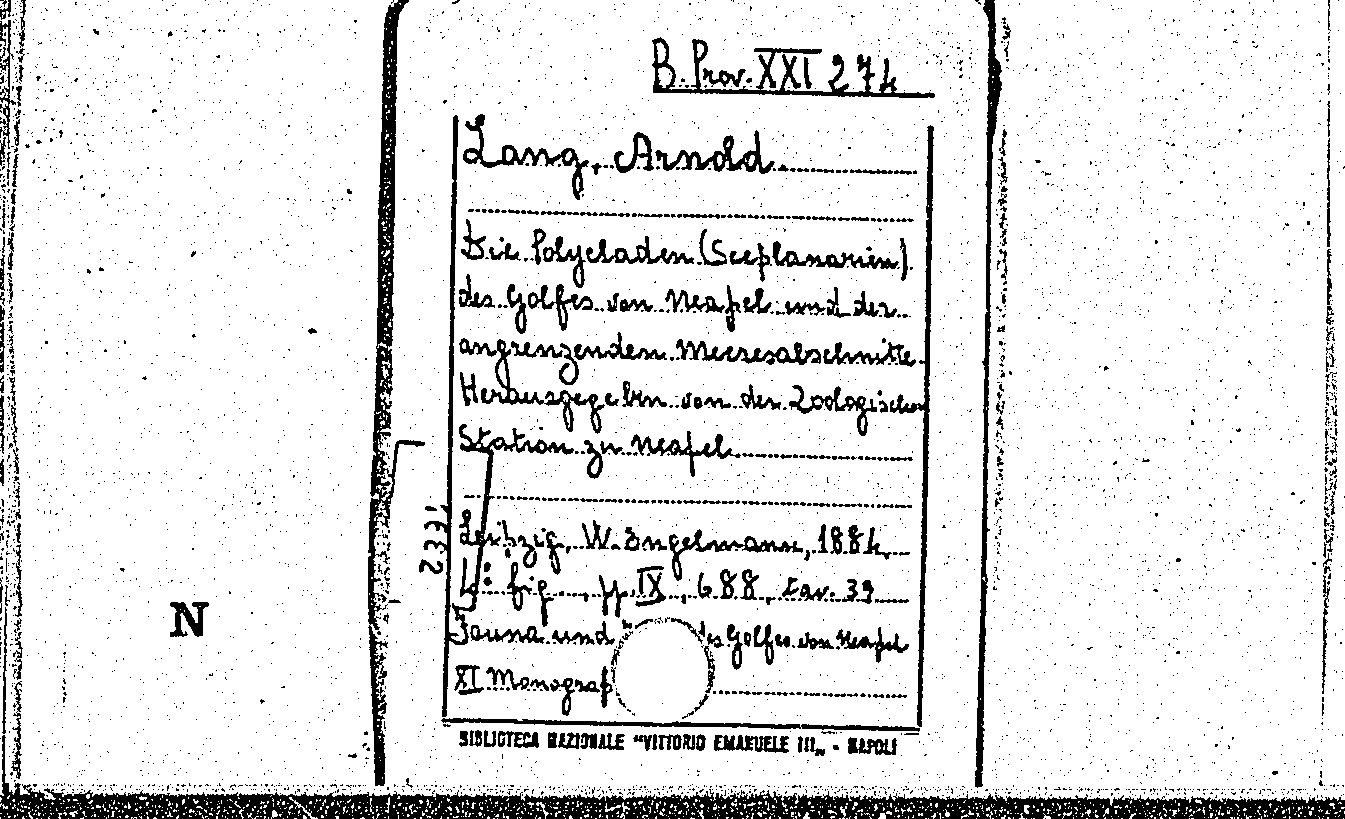 B. Prov. XXI 274
Lang, Arnold.
Die Polycladen (Seeplanarien)
des Golfes von Neapel und der
angrenzenden Meeresabschnitte.
Herausgegeben von der Zoologischen
Station zu Neapel
Leipzig, W. Engelmann, 1884,
4: fig., pp. IX, 688, tav. 39
Fauna und des Golfes von Neapel
XI Monograf
BIBLIOTECA NAZIONALE "VITTORIO EMANUELE III„ - NAPOLI
N